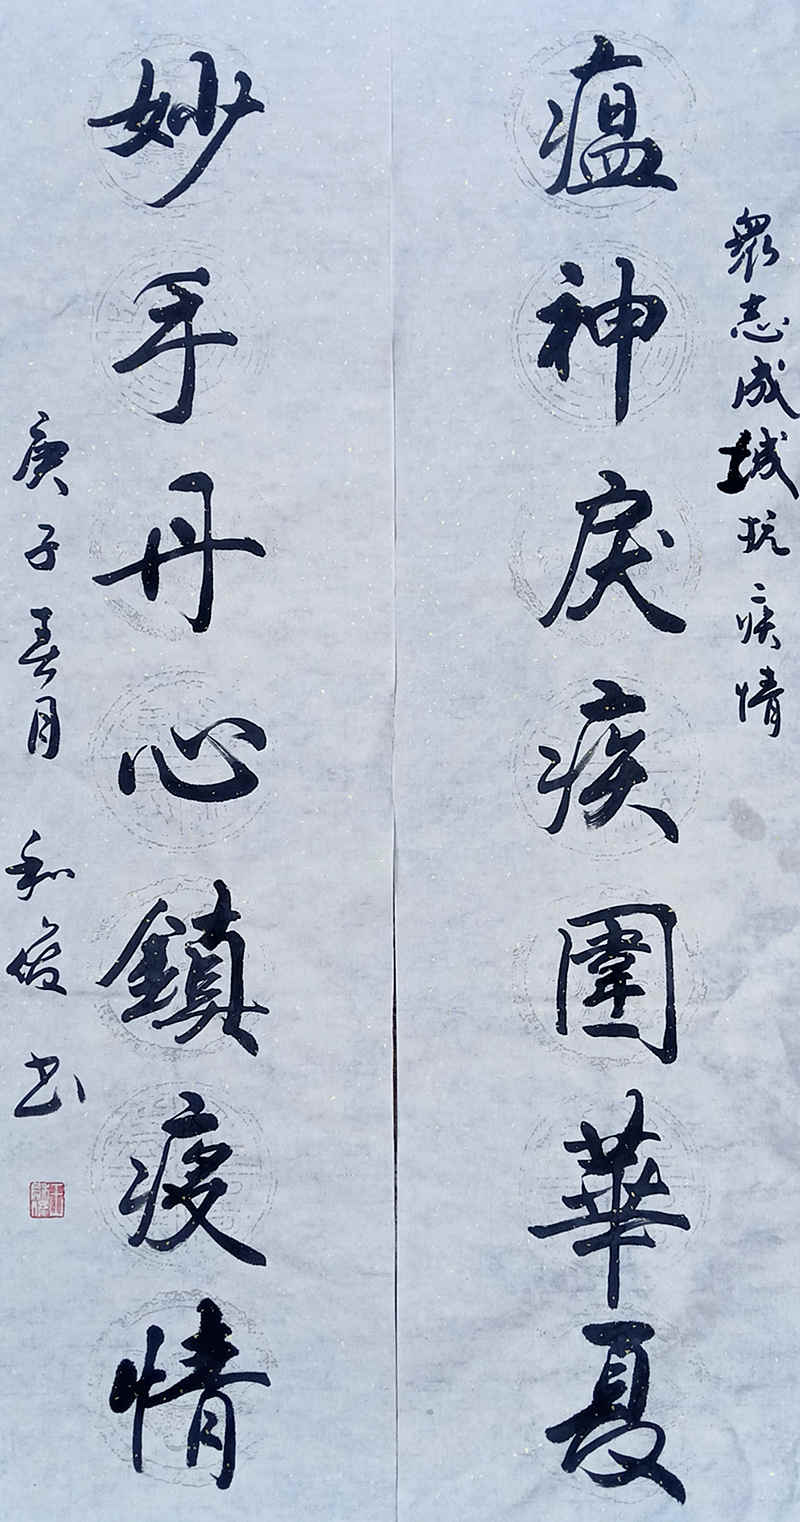 眾志成城抗疾情
瘟神戾疾圍華夏
妙手丹心鎮疫情
庚子春月 和 书